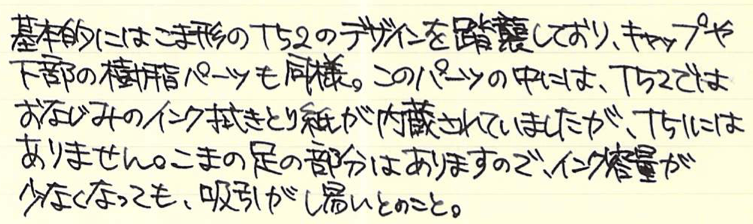 基本的にはこま形のT52のデザインを踏襲しており、キャップや
下部の樹脂パーツも同様。このパーツの中には、T52では
おなじみのインク拭きとり紙が内蔵されていましたが、T51には
ありません。こまの足の部分はありますので、インク容量が
少なくなっても、吸引がし易いとのこと。